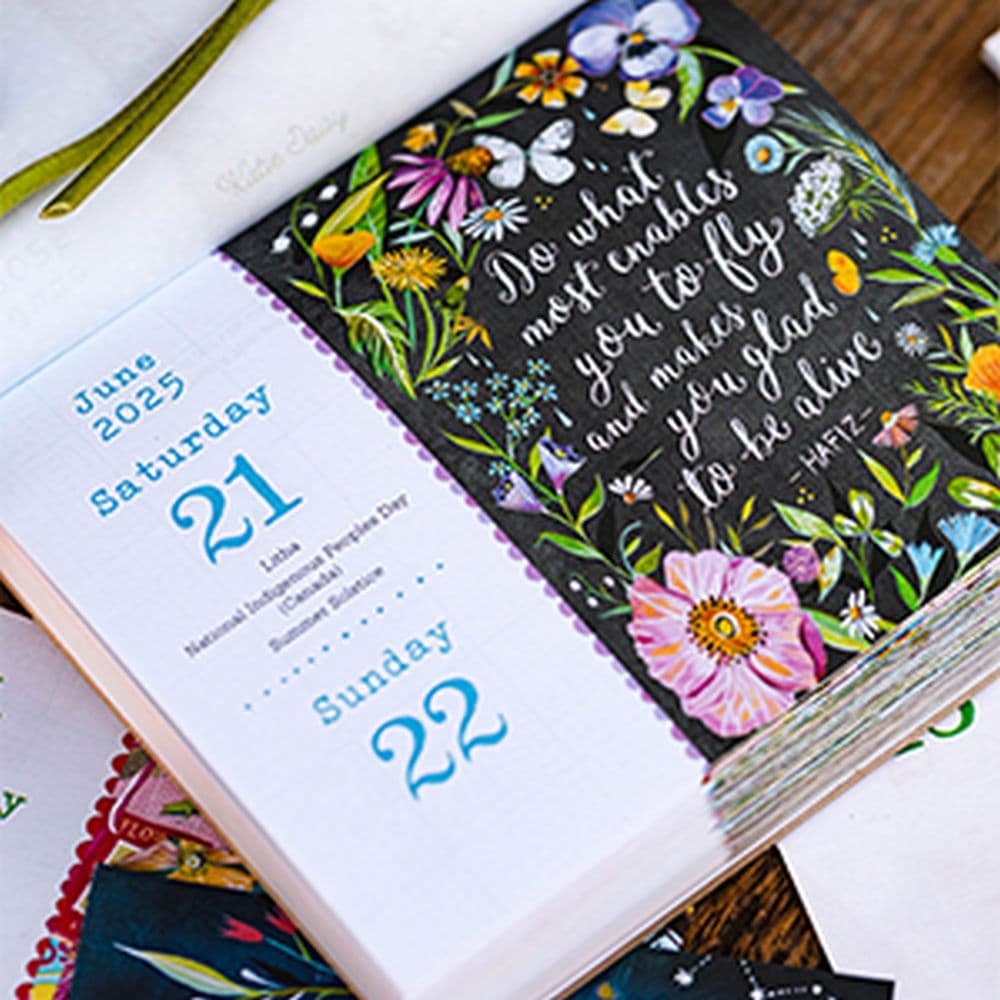 Katie Daisy
June
2025
Saturday
21
Litha
National Indigenous Peoples Day
(Canada)
Summer Solstice
Sunday
22
Do what
most enables
you to fly
and makes
you glad
to be alive
—HAFIZ—
FLO